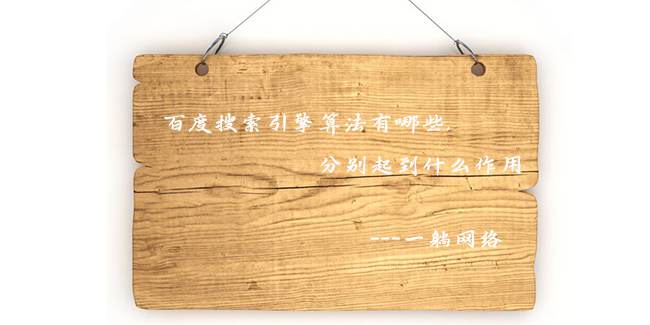 百度搜索引擎算法有哪些,
分别起到什么作用
---一躺网络